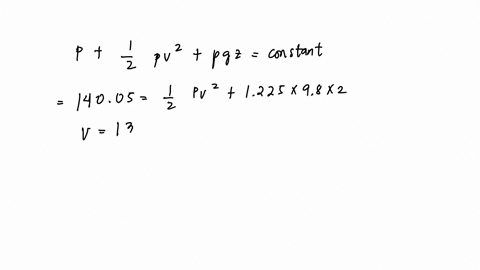 p + 1/2 ρv² + ρgz = constant
= 140.05 = 1/2 ρv² + 1.225 × 9.8 × 2
v = 13